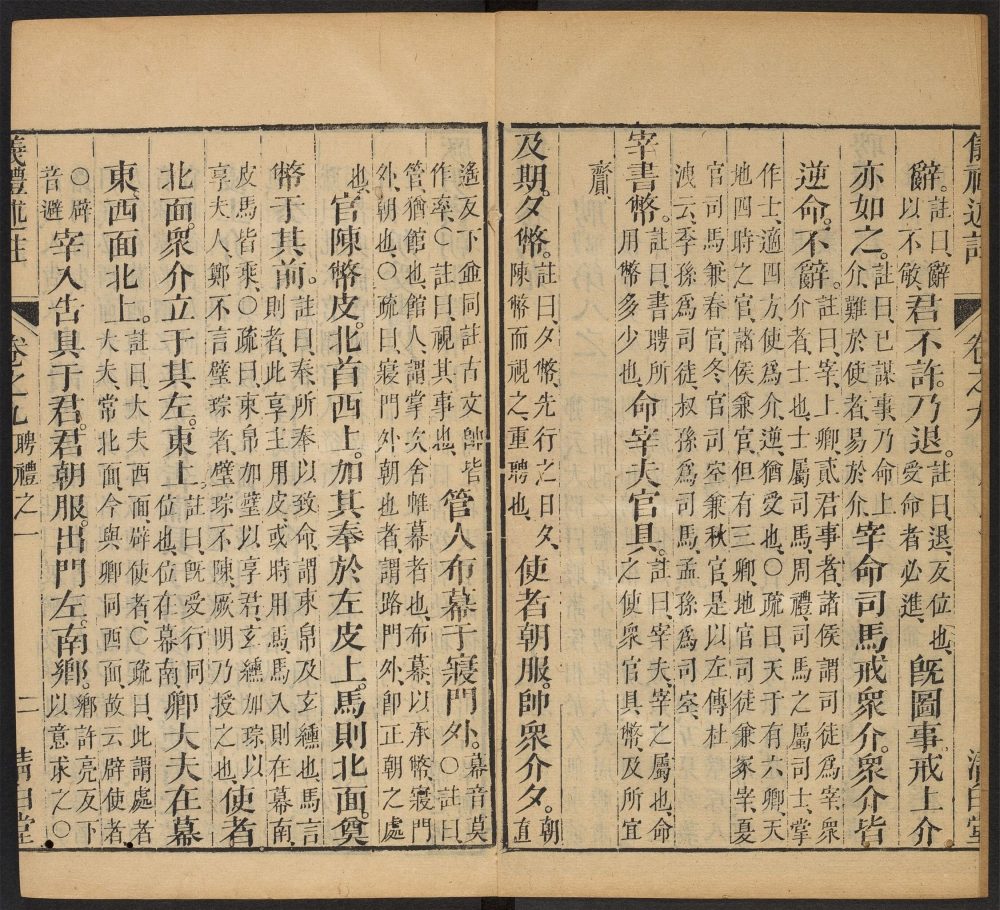 儀禮述註 卷之九 清白堂
辭。註曰、辭以不敏、君不許。乃退。註曰、退、反位也、受命者必進、既圖事。戒上介
亦如之。註曰、已謀事、乃命上介、難於使者、易於介、宰命司馬戒眾介。眾介皆
逆命。不辭。註曰、宰、上卿、貳君事者、諸侯謂司徒爲宰、眾介者、士也、士屬司馬、周禮、司馬之屬司士掌
作士、適四方、使爲介、逆、猶受也、○疏曰、天子有六卿、天
地四時之官、諸侯兼官、但有三卿、地官司徒兼冢宰、夏
官司馬兼春官、冬官司空兼秋官、是以左傳杜
洩云、季孫爲司徒、叔孫爲司馬、孟孫爲司空、
宰書幣。註曰、書聘所用幣多少也、命宰夫官具。註曰、宰夫、宰之屬也、命之使眾官具幣、及所宜
齎、
及期。夕幣。註曰、夕幣、先行之日夕、陳幣而視之、重聘也、使者朝服。帥眾介夕。朝直
遙反下並同註古文帥皆作率、○註曰、視其事也、管人布幕于寢門外。幕音莫○註曰、
管、猶館也、館人、謂掌次舍帷幕者也、布幕、以承幣、寢門
外、朝也、○疏曰、寢門外朝也者、謂路門外、卽正朝之處
也、官陳幣皮。北首西上。加其奉於左皮上。馬則北面。奠
幣于其前。註曰、奉、所奉以致命、謂束帛及玄纁也、馬言則者、此享主用皮、或時用馬、馬入則在幕南、
皮馬皆乘、○疏曰、束帛加璧以享君、玄纁加琮以享夫人、鄭不言璧琮者、璧琮不陳、厥明乃授之也、使者
北面。眾介立于其左。東上。註曰、既受行同位也、位在幕南、卿大夫在幕
東西面北上。註曰、大夫西面、辟使者、○疏曰、此謂處者大夫、常北面、今與卿同西面、故云辟使者
○辟音避宰入告具于君。君朝服。出門左。南鄉。鄉許亮反下以意求之○
儀禮述註 卷之九 聘禮之一 二 清白堂